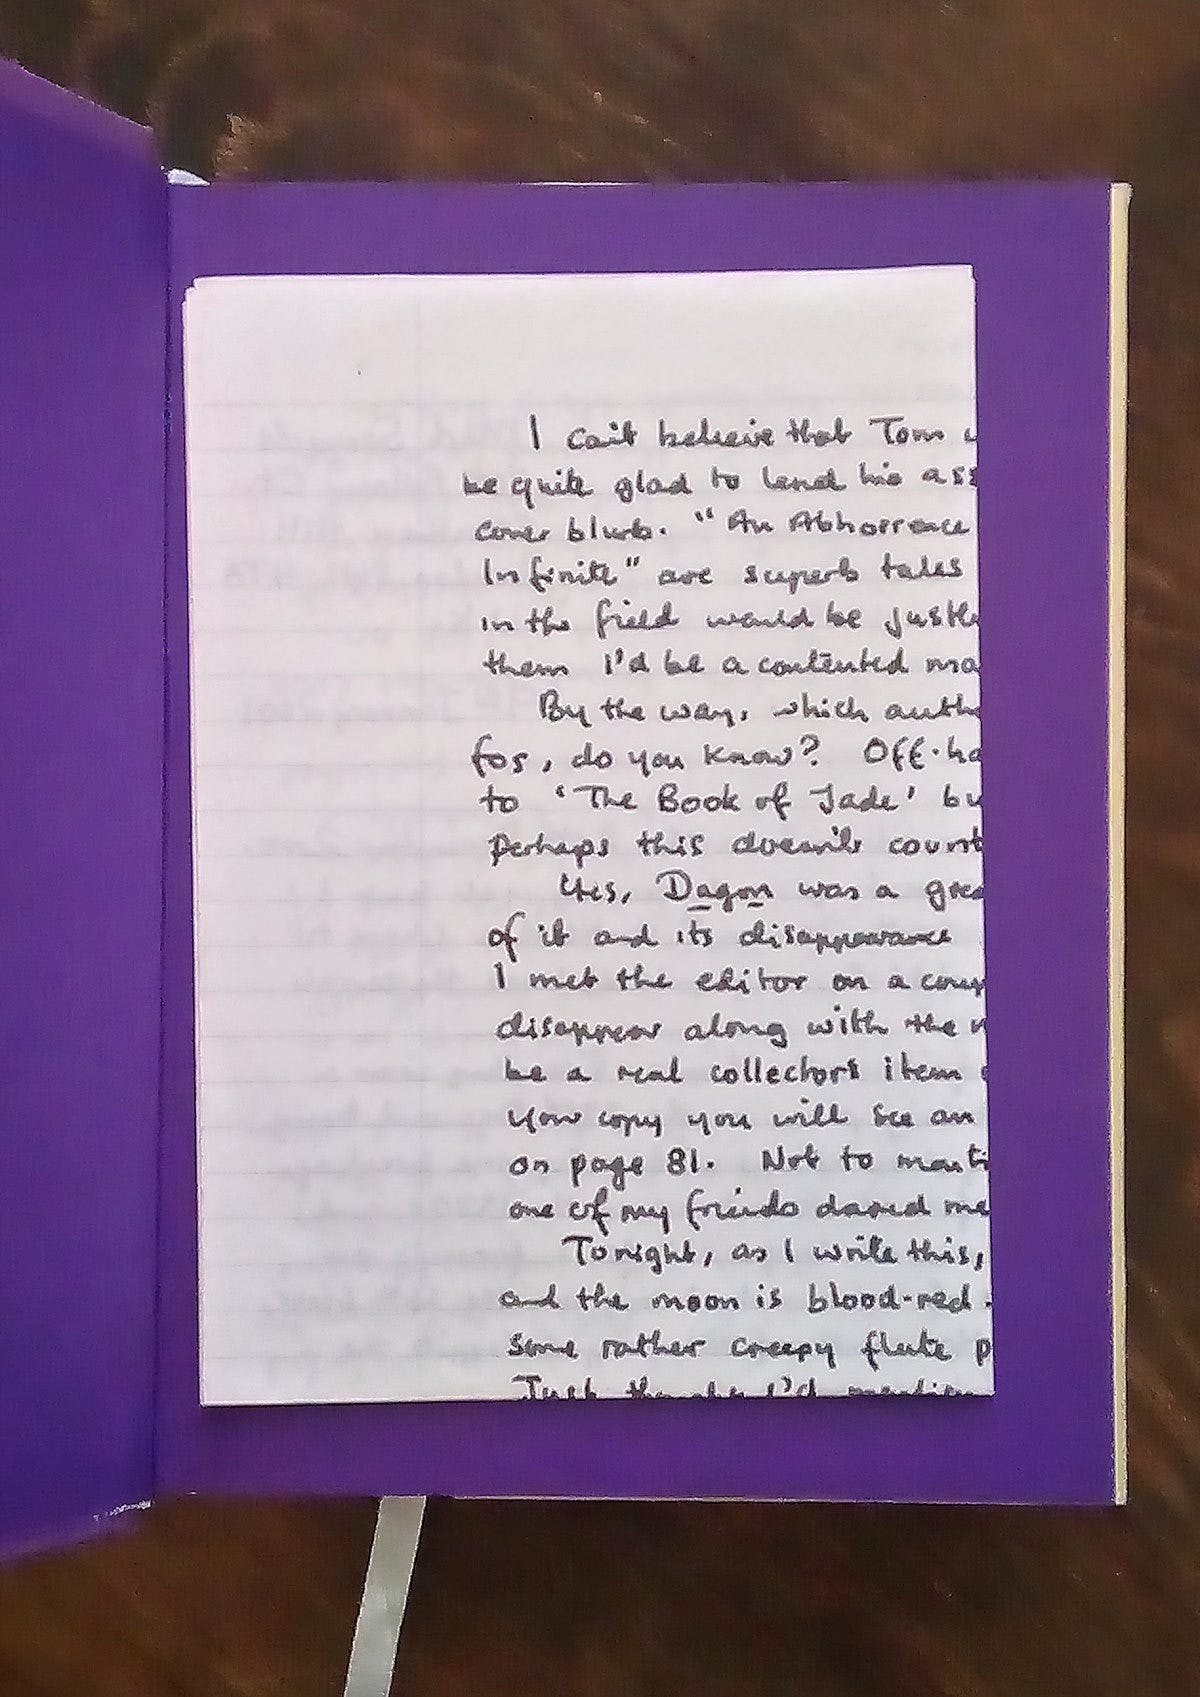 I can't believe that Tom
be quite glad to lend his ass
cover blurb. "An Abhorrence
Infinite" are superb tales
in the field would be justl
them I'd be a contented ma
By the way, which auth
for, do you know? Off-ha
to 'The Book of Jade' bu
perhaps this doesn't count
Yes, Dagon was a grea
of it and its disappearance
I met the editor on a coup
disappear along with the
be a real collectors item
your copy you will see an
on page 81. Not to menti
one of my friends dared me
Tonight, as I write this,
and the moon is blood-red
some rather creepy flute p
Just thought I'd mention